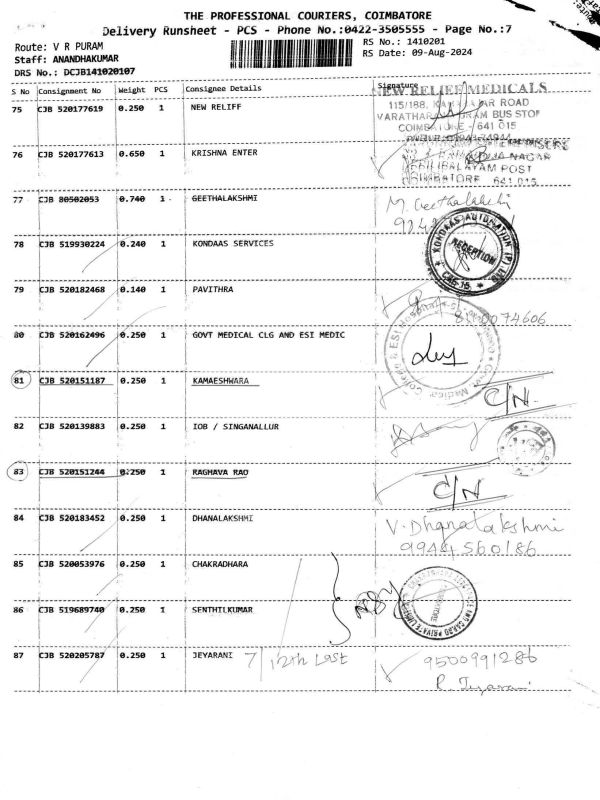 THE PROFESSIONAL COURIERS, COIMBATORE
Delivery Runsheet - PCS - Phone No.:0422-3505555 - Page No.:7
Route: V R PURAM
RS No.: 1410201
Staff: ANANDHAKUMAR
RS Date: 09-Aug-2024
DRS No.: DCJB141020107
S No Consignment No Weight PCS Consignee Details Signature
75 CJB 520177619 0.250 1 NEW RELIFF
NEW RELIEF MEDICALS
115/188, KAMARAJAR ROAD
VARATHARAJAPURAM BUS STOP
COIMBATORE - 641 015
76 CJB 520177613 0.650 1 KRISHNA ENTER
NAGAR
POST
COIMBATORE 641 015
77 CJB 80502053 0.740 1 GEETHALAKSHMI
M. Geethalakshmi
78 CJB 519930224 0.240 1 KONDAAS SERVICES
KONDAAS AUTOMATION (P) LTD
RECEPTION
CBE-15
79 CJB 520182468 0.140 1 PAVITHRA
80 CJB 520162496 0.250 1 GOVT MEDICAL CLG AND ESI MEDIC
Medical College & ESI Hospital
81 CJB 520151187 0.250 1 KAMAESHWARA
C/N
82 CJB 520139883 0.250 1 IOB / SINGANALLUR
83 CJB 520151244 0.250 1 RAGHAVA RAO
C/N
84 CJB 520183452 0.250 1 DHANALAKSHMI
V. Dhanalakshmi
9944560186
85 CJB 520053976 1 0.250 CHAKRADHARA
86 CJB 519689740 0.250 1 SENTHILKUMAR
87 CJB 520205787 0.250 1 JEYARANI 7/12th Last
9500991286